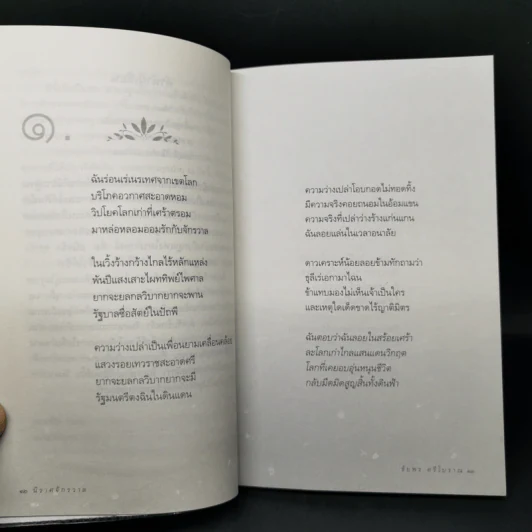 ๑.
ฉันร่อนเร่เนรเทศจากเขตโลก
บริโภคอวกาศสะอาดหอม
วิปโยคโลกเก่าที่เศร้าตรอม
มาหล่อหลอมออมรักกับจักรวาล
ในเวิ้งร้างกว้างไกลไร้หลักแหล่ง
พันปีแสงเสาะไผททิพย์ไพศาล
ยากจะยลกลวิบากยากจะพาน
รัฐบาลซื่อสัตย์ในปัถพี
ความว่างเปล่าเป็นเพื่อนยามเคลื่อนคล้อย
แสวงรอยเทวราชสะอาดศรี
ยากจะยลกลวิบากยากจะมี
รัฐมนตรีตงฉินในดินแดน
นิราศจักรวาล
ความว่างเปล่าโอบกอดไม่ทอดทิ้ง
มีความจริงคอยถนอมในอ้อมแขน
ความจริงที่เปล่าว่างร้างแก่นแกน
ฉันลอยแล่นในเวลาอนาลัย
ดาวเคราะห์น้อยลอยข้ามทักถามว่า
ธุลีเร่เอกามาไฉน
ข้าแทบมองไม่เห็นเจ้าเป็นใคร
และเหตุใดเด็ดขาดไร้ญาติมิตร
ฉันตอบว่าฉันลอยในสร้อยเศร้า
สละโลกเก่าไกลแสนแดนวิกฤต
โลกที่เคยอบอุ่นหนุนชีวิต
กลับมืดมิดสูญสิ้นทั้งดินฟ้า